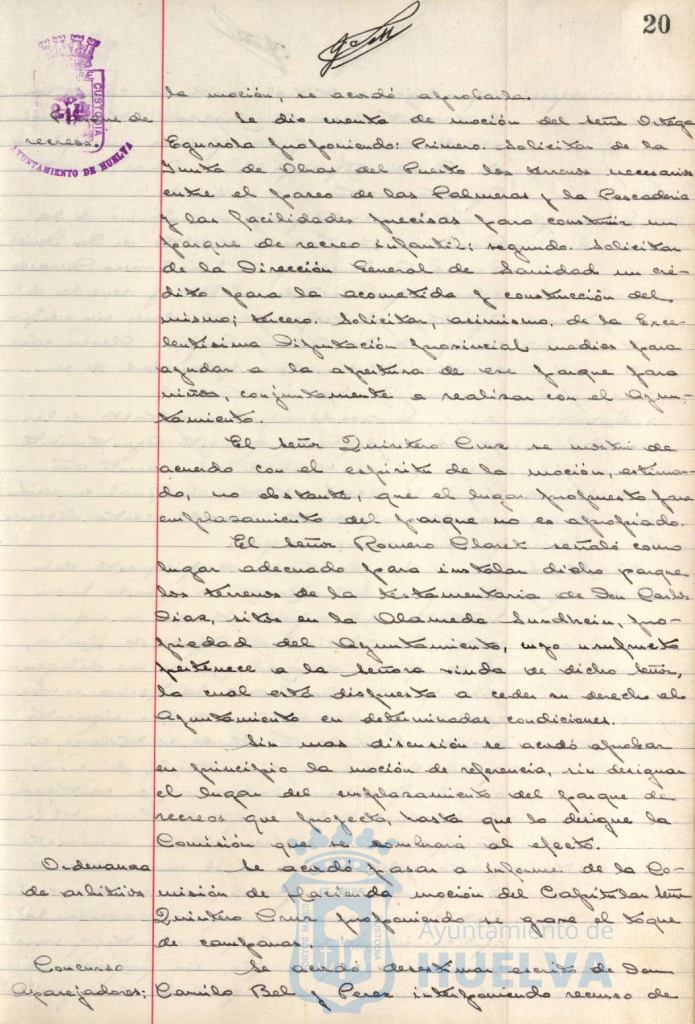 20
la moción, se acordó aprobarla.
Parque de
recreos.
AYUNTAMIENTO DE HUELVA
CUSTODIA
Se dio cuenta de moción del Señor Ortega
Egurrola proponiendo: Primero. Solicitar de la
Junta de Obras del Puerto los terrenos necesarios
entre el paseo de las Palmeras y la Pescadería
y las facilidades precisas para construir un
parque de recreo infantil; segundo. Solicitar
de la Dirección General de Sanidad un cré-
dito para la acometida y construcción del
mismo; tercero. Solicitar, asimismo, de la Exce-
lentísima Diputación provincial medios para
ayudar a la apertura de ese parque para
niños, conjuntamente a realizar con el Ayun-
tamiento.
El Señor Quintero Cruz se mostró de
acuerdo con el espíritu de la moción, estiman-
do, no obstante, que el lugar propuesto para
emplazamiento del parque no es apropiado.
El Señor Romero Claret señaló como
lugar adecuado para instalar dicho parque
los terrenos de la testamentaria de Don Carlos
Díaz, sitos en la Alameda Sundhein, pro-
piedad del Ayuntamiento, cuyo usufructo
pertenece a la Señora viuda de dicho Señor,
la cual está dispuesta a ceder su derecho al
Ayuntamiento en determinadas condiciones.
Sin mas discusión se acordó aprobar
en principio la moción de referencia, sin designar
el lugar del emplazamiento del parque de
recreos que proyecta, hasta que lo designe la
Comisión que se nombrará al efecto.
Ordenanza
de arbitrios
Se acordó pasar a informe de la Co-
misión de Hacienda moción del Capitular Señor
Quintero Cruz proponiendo se grave el toque
de campanas.
Concurso
Aparejadores:
Se acordó desestimar escrito de Don
Camilo Bel y Perez interponiendo recurso de
PORTUS MARIS ET TERRAE CUSTODIA
Ayuntamiento de
HUELVA